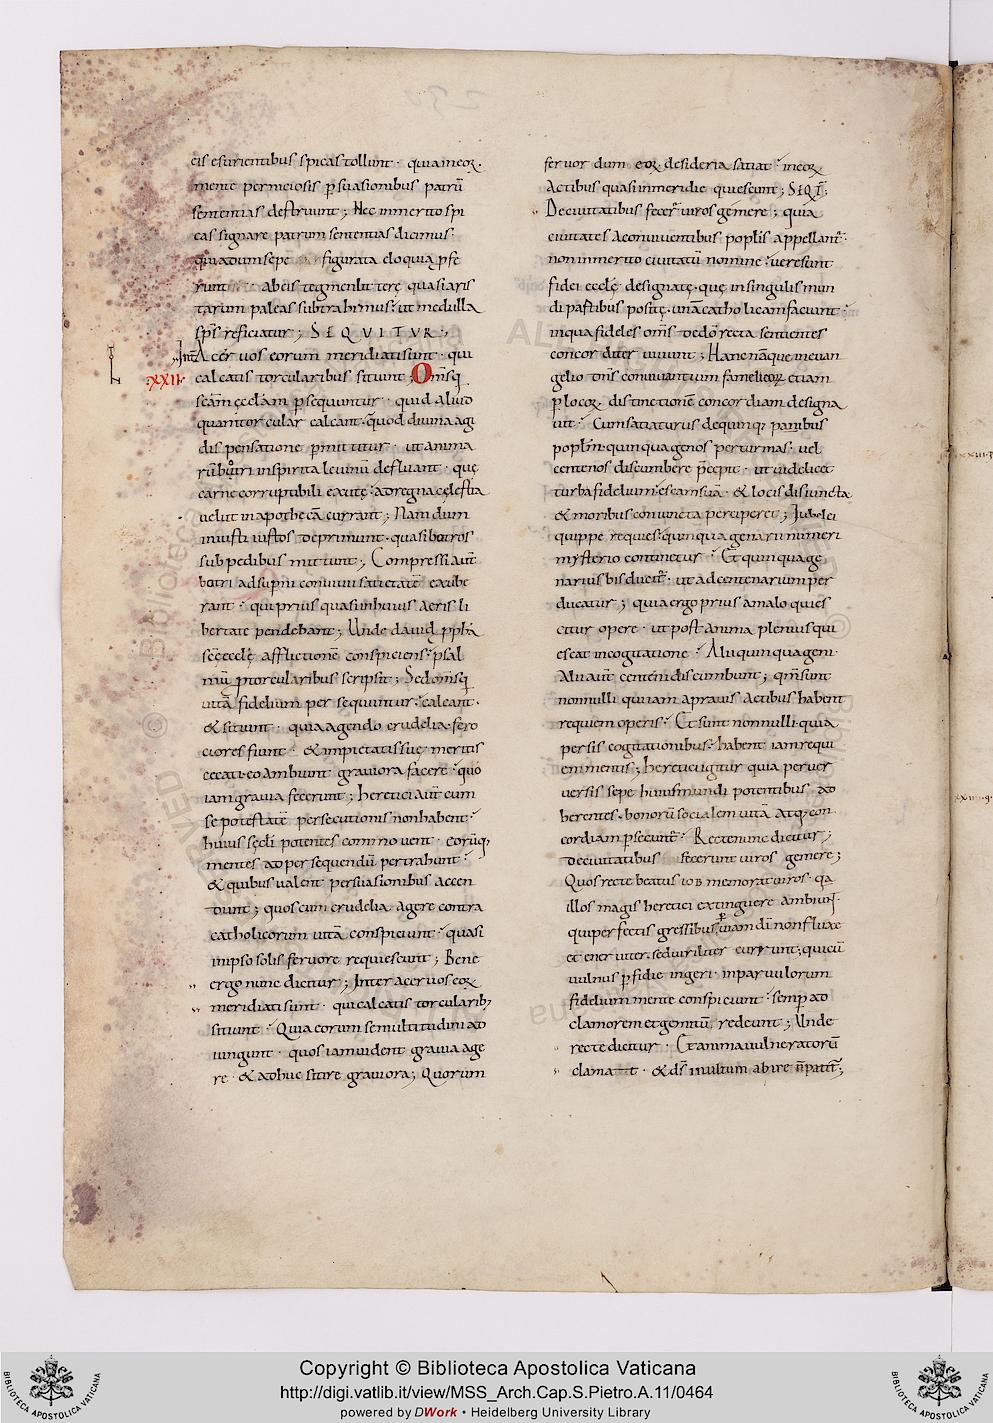 cis esurientibus spicas tollunt · quia in eoꝝ ·
mente perniciosis p̄suasionibus patrū
sententias destruunt ; Nec inmerito spi
cas signare patrum sententias dicimus ·
quia dum sepe figurata eloquia p̄fe
runt · ab eis tegmen litterę quasi aris
tarum paleas subtrahimus · ut medulla
sp̄s reficiatur ; SEQVITVR ;
Int̄ Acervos eorum meridiati sunt · qui
·XXII· calcatis torcularibus sitiunt ; Om̄s q
sc̄am ęcclām p̄sequuntur · quid aliud
quam torcular calcant · quod divina agi
dispensatione p̄mittitur · ut anima
rū botri in spirita levinū defluant · quę
carne corruptibili exutę · ad regna cęlestia
velut in apothecā currant ; Nam dum
iniusti iustos deprimunt · quasi botros
sub pedibus mittunt ; Compressi aūt
botri ad sup̄ni convivii satietatē exube
rant · qui prius quasi in huius aeris li
bertate pendebant ; Unde david ppha
sc̄ę ecclę afflictionē conspiciens · psal
mū p torcularibus scripsit ; Sed om̄s q
vitā fidelium persequuntur · calcant ·
& sitiunt · quia agendo crudelia · fero
ciores fiunt · & impietatis suę meritis
cecati · eo ambiunt graviora facere · quo
iam gravia fecerunt ; heretici aūt cum
se potestatē persecutionis non habent ·
huius sęcli potentes commovent · eorūq;
mentes ad persequendū pertrahunt ·
& quibus valent persuasionibus accen
dunt ; quos cum crudelia agere contra
catholicorum vitā conspiciunt · quasi
in ipso solis fervore requiescunt ; Bene
ergo nunc dicitur ; Inter acervos eoꝝ
meridiati sunt · qui calcatis torcularib;
sitiunt · Quia eorum se multitudini ad
iungunt · quos iam vident gravia age
re · & adhuc sitire graviora ; Quorum
fervor dum eoꝝ desideria satiat · in eoꝝ
Actibus quasi in meridie quiescunt ; SEQT̄ ;
De civitatibus fecer̄ viros gemere ; quia
civitates a conviventibus poplis appellant̄ ·
non inmerito civitatū nomine · vere sunt
fidei ecclę designatę · quę in singulis mun
di partibus positę · unā catholicam faciunt ·
in qua fideles om̄s de dō recta sentientes
concorditer vivunt ; Hanc nāque in evan
gelio dn̄s conviventium famelicoꝝ etiam
p̄ locoꝝ distinctionē concordiam designa
vit · Cum satiaturus de quinq; panibus
poplm̄ · quinquagenos per turmas · vel
centenos discumbere p̄cepit · ut videlicet
turba fidelium · escam suā · & locis disiuncta
& moribus coniuncta perciperet ; Iubelei
quippe requies · quinquagenarii numeri
mysterio continetur · Et quinquage
narius bis ducit̄ · ut ad centenarium per
ducatur ; quia ergo prius a malo quies
citur opere · ut post anima plenius qui
escat in cogitatione · Alii quinquageni ·
Alii aūt centeni discumbunt ; qm̄ sunt
nonnulli qui iam a pravis actibus habent
requiem operis · Et sunt nonnulli · quia
perversis cogitationibus · habent iam requi
em mentis ; heretici igitur quia perver
versis sepe huius mundi potentibus ad
herentes · bonorū socialem vitā atq; con
cordiam p̄secunt̄ · Recte nunc dicitur ;
de civitatibus fecerunt viros gemere ;
Quos recte beatus iob memorat viros · qa
illos magis heretici extinguere ambiunt ·
qui perfectis gressibus p viam dī non fluxe
et enerviter · sed viriliter currunt ; qui cū
vulnus p̄fidie ingeri · in parvulorum
fidelium mente conspiciunt · semp̄ ad
clamorem et gemitū redeunt ; Unde
recte dicitur · Et anima vulneratorū
clamat · & ds̄ inultum abire n̄ patit̄ ;
Copyright © Biblioteca Apostolica Vaticana
http://digi.vatlib.it/view/MSS_Arch.Cap.S.Pietro.A.11/0464
powered by DWork • Heidelberg University Library